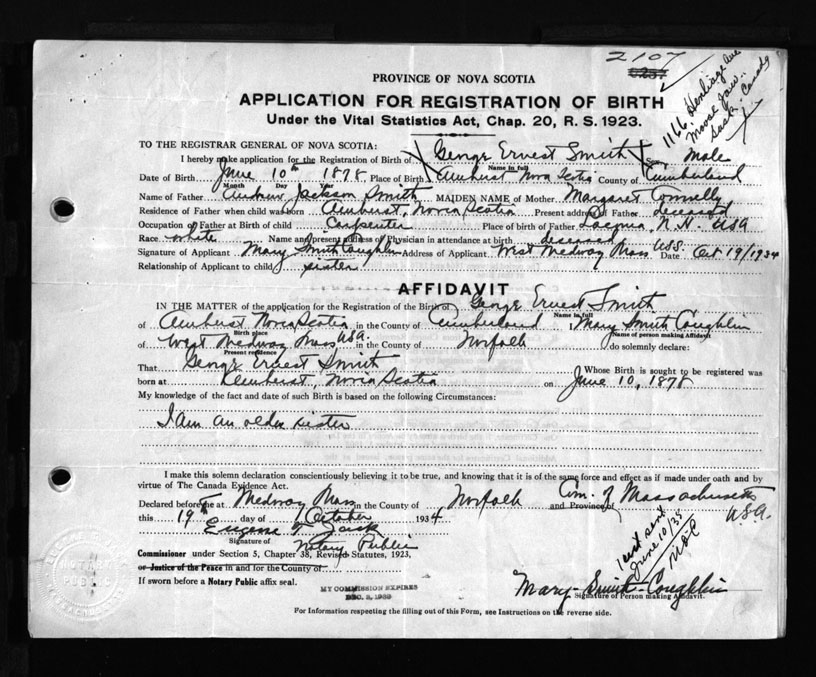 2107
PROVINCE OF NOVA SCOTIA
1166 Henleage Ave
Moose Jaw
Sask. Canada
APPLICATION FOR REGISTRATION OF BIRTH
Under the Vital Statistics Act, Chap. 20, R. S. 1923.
TO THE REGISTRAR GENERAL OF NOVA SCOTIA:
I hereby make application for the Registration of Birth of George Ernest Smith Sex Male
Name in full
Date of Birth June 10th 1878 Place of Birth Amherst Nova Scotia County of Cumberland
Month Day Year
Name of Father Andrew Jackson Smith MAIDEN NAME of Mother Margaret Connelly
Residence of Father when child was born Amherst, Nova Scotia Present address of Father deceased
Occupation of Father at Birth of child Carpenter Place of birth of Father Laconia, N.H. USA
Race white Name and present address of Physician in attendance at birth deceased
Signature of Applicant Mary Smith Coughlin Address of Applicant West Medway Mass USA Date Oct 19/1934
Relationship of Applicant to child sister
AFFIDAVIT
IN THE MATTER of the application for the Registration of the Birth of George Ernest Smith
Name in full
of Amherst Nova Scotia in the County of Cumberland I Mary Smith Coughlin
Birth place Name of person making Affidavit
of West Medway Mass USA. in the County of Norfolk do solemnly declare:
Present residence
That George Ernest Smith Whose Birth is sought to be registered was
born at Amherst, Nova Scotia on June 10, 1878
My knowledge of the fact and date of such Birth is based on the following Circumstances:
I am an older sister
I make this solemn declaration conscientiously believing it to be true, and knowing that it is of the same force and effect as if made under oath and by
virtue of The Canada Evidence Act.
Declared before me at Medway Mass in the County of Norfolk and Province of Com. of Massachusetts
USA.
this 19th day of October 1934
Eugene
Signature of
Notary Public
1 cert sent
June 10/35
Commissioner under Section 5, Chapter 38, Revised Statutes, 1923,
or Justice of the Peace in and for the County of
If sworn before a Notary Public affix seal.
MY COMMISSION EXPIRES
Mary-Smith-Coughlin
Signature of Person making Affidavit.
For Information respecting the filling out of this Form, see Instructions on the reverse side.